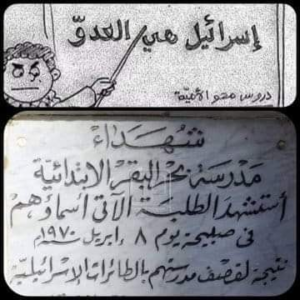 إسرائيل هي العدوّ
دروس محو الأميّة
شهداء
مدرسة بحر البقر الابتدائية
أستشهد الطلبة الآتى أسماؤهم
فى صبيحة يوم ٨ ابريل ١٩٧٠م
نتيجة لقصف مدرستهم بالطائرات الاسرائيلية